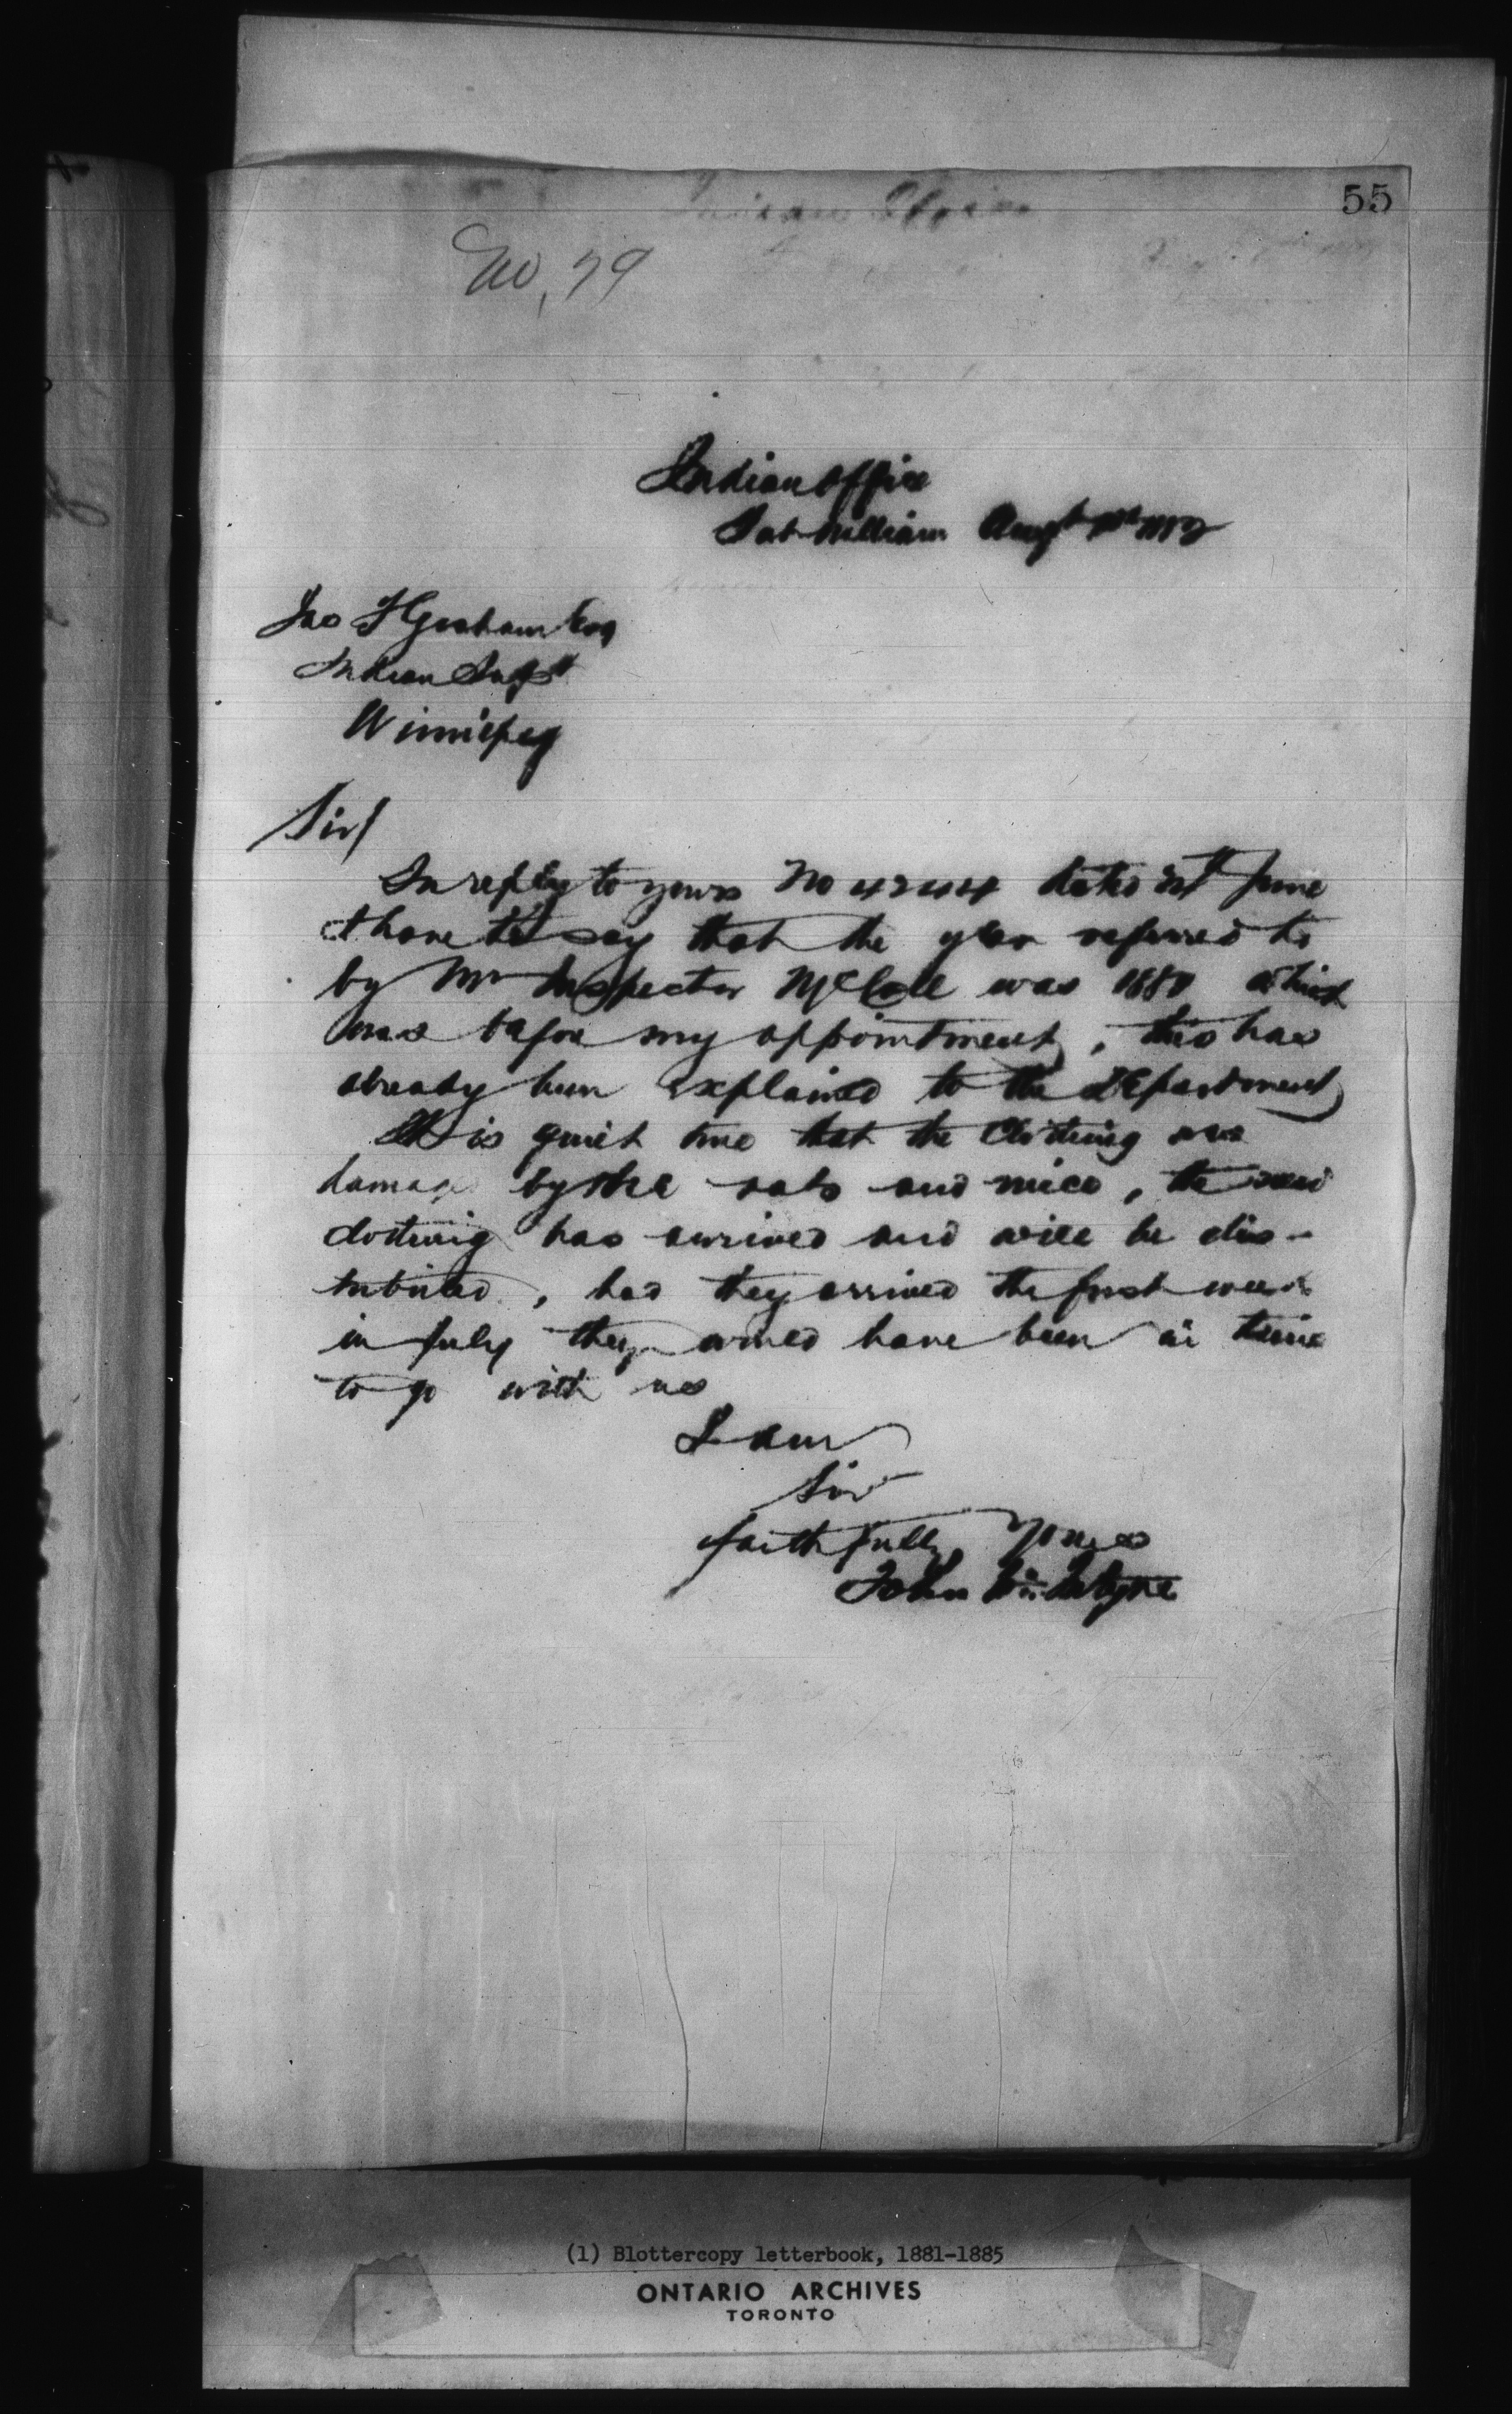 55
No, 79
Indian Office
Fort William Augt 1882
Jno F Graham Esq
Indian Supt
Winnipeg
Sir/
In reply to yours No 4244 dated June
I have to say that the year referred to
by Mr Inspector McColl was 1880 which
was before my appointment, this has
already been explained to the Department
It is quiet true that the Clothing was
damaged by the rats and mice, the new
clothing has arrived and will be dis-
tributed, had they arrived the first week
in July they would have been in time
to go with us
I am
Sir
faithfully Yours
John McIntyre
(1) Blottercopy letterbook, 1881-1885
ONTARIO ARCHIVES
TORONTO